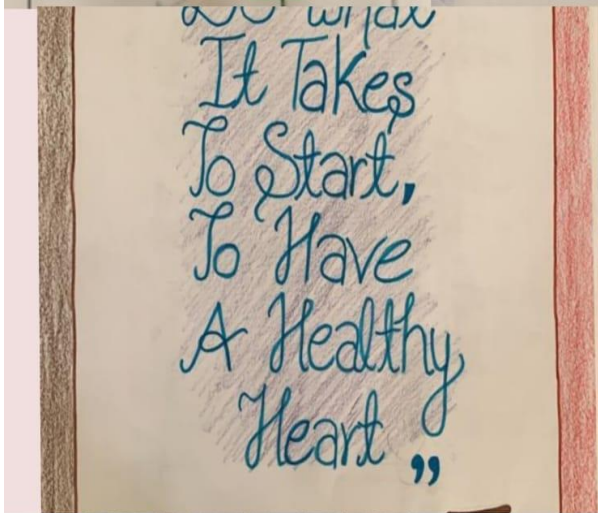 Do what
It Takes
To Start,
To Have
A Healthy
Heart ,,